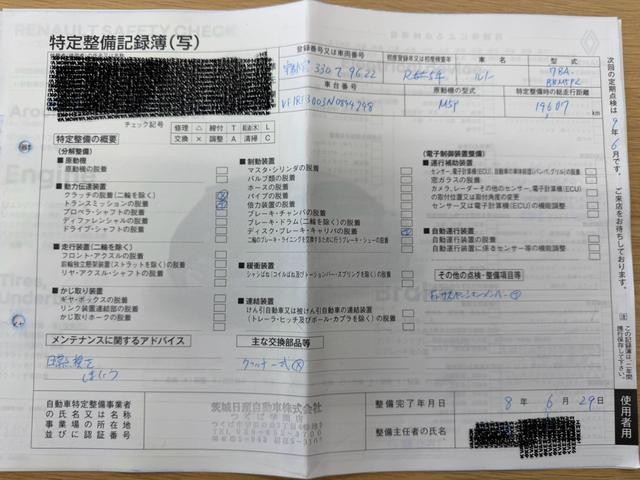 RENAULT SAFETY CHECK
特定整備記録簿(写)
登録番号又は車両番号
初度登録年又は初度検査年
車 名
型 式
330 て 9622
R5年
ルノー
7BA-
車台番号
原動機の型式
特定整備時の総走行距離
M5P
19607
km
チェック記号
修理 △ 締付 T 給油(水) L
交換 × 調整 A 清掃 C
特定整備の概要
(分解整備)
■原動機
原動機の脱着
■動力伝達装置
クラッチの脱着(二輪を除く)
トランスミッションの脱着
プロペラ・シャフトの脱着
ディファレンシャルの脱着
ドライブ・シャフトの脱着
■走行装置(二輪を除く)
フロント・アクスルの脱着
前輪独立懸架装置(ストラットを除く)の脱着
リヤ・アクスル・シャフトの脱着
■かじ取り装置
ギヤ・ボックスの脱着
リンク装置連結部の脱着
かじ取りホークの脱着
■制動装置
マスタ・シリンダの脱着
バルブ類の脱着
ホースの脱着
パイプの脱着
倍力装置の脱着
ブレーキ・チャンバの脱着
ブレーキ・ドラム(二輪を除く)の脱着
ディスク・ブレーキ・キャリパの脱着
二輪のブレーキ・ライニングを交換するために行うブレーキ・シューの脱着
■緩衝装置
シャシばね(コイルばね及びトーションバー・スプリングを除く)の脱着
■連結装置
けん引自動車又は被けん引自動車の連結装置
(トレーラ・ヒッチ及びボール・カプラを除く)の脱着
(電子制御装置整備)
■運行補助装置
センサー、電子計算機(ECU)、自動車の前部(バンパ、グリル)の脱着
窓ガラスの脱着
カメラ、レーダーその他のセンサー、電子計算機(ECU)
の取付位置又は取付角度の変更
センサー又は電子計算機(ECU)の機能調整
■自動運行装置
自動運行装置の脱着
自動運行装置に係るセンサー等の機能調整
その他の点検・整備項目等
メンテナンスに関するアドバイス
日常点検を
しましょう
主な交換部品等
クラッチ一式
自動車特定整備事業者
の氏名又は名称
事業場の所在地
並びに認証番号
茨城日産自動車株式会社
整備完了年月日
8 年 6 月 29 日
整備主任者の氏名
次回の定期点検は 9年 6月です。ご来店をお待ちしております。
注 この記録簿は、二年間携行保存して下さい。
使用者用